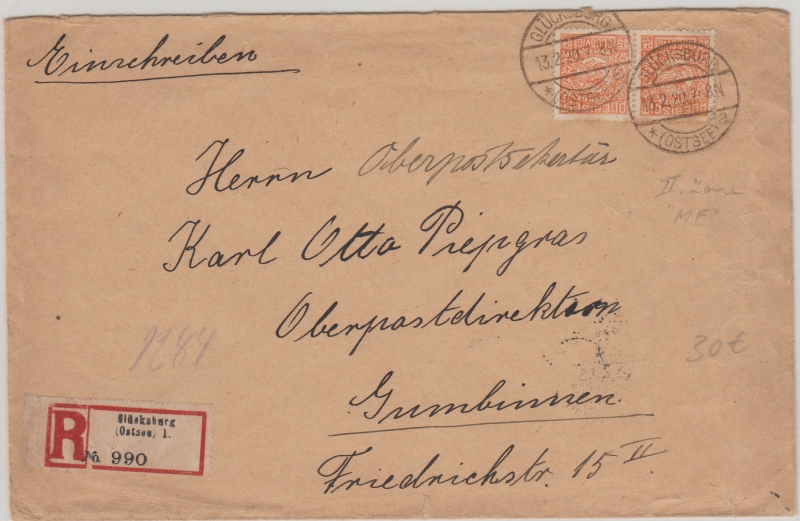 Einschreiben
GLÜCKSBURG
13.2.20
*(OSTSEE)
GLÜCKSBURG
13.2.20. 7-8N
*(OSTSEE)
Herrn Oberpostsekertär
II. Zone
"MF"
Karl Otto Piepgras
Oberpostdirektion
30€
Gumbinnen
Friedrichstr. 15 II
R
Glücksburg
(Ostsee) 1.
No 990